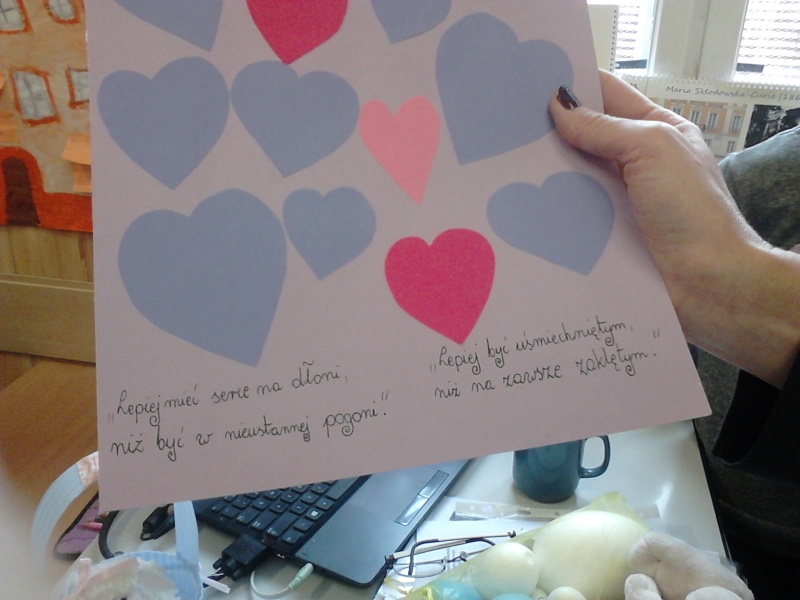 Maria Skłodowska-Curie (186
„Lepiej mieć serce na dłoni,
niż być w nieustannej pogoni."
„Lepiej być uśmiechniętym,
niż na zawsze zaklętym."